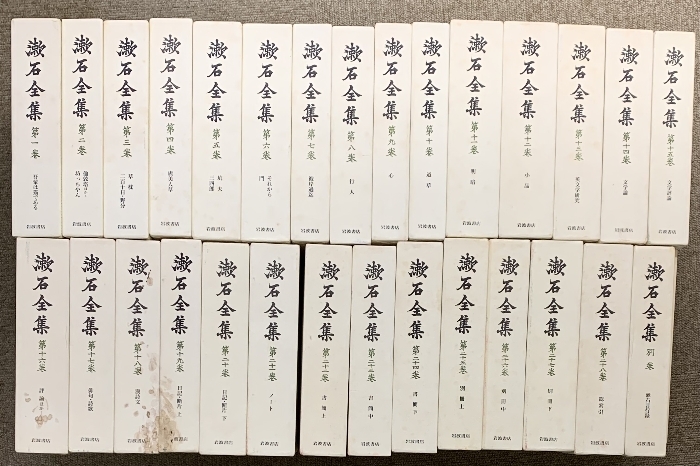 漱石全集 第一巻 吾輩は猫である 岩波書店
漱石全集 第二巻 倫敦塔ほか 坊っちゃん 岩波書店
漱石全集 第三巻 草枕 二百十日・野分 岩波書店
漱石全集 第四巻 虞美人草 岩波書店
漱石全集 第五巻 坑夫 三四郎 岩波書店
漱石全集 第六巻 それから 門 岩波書店
漱石全集 第七巻 彼岸過迄 岩波書店
漱石全集 第八巻 行人 岩波書店
漱石全集 第九巻 心 岩波書店
漱石全集 第十巻 道草 岩波書店
漱石全集 第十一巻 明暗 岩波書店
漱石全集 第十二巻 小品 岩波書店
漱石全集 第十三巻 英文学研究 岩波書店
漱石全集 第十四巻 文学論 岩波書店
漱石全集 第十五巻 文学評論 岩波書店
漱石全集 第十六巻 評論ほか 岩波書店
漱石全集 第十七巻 俳句・詩歌 岩波書店
漱石全集 第十八巻 漢詩文 岩波書店
漱石全集 第十九巻 日記・断片 上 岩波書店
漱石全集 第二十巻 日記・断片 下 岩波書店
漱石全集 ノート 岩波書店
漱石全集 第二十二巻 書簡 上 岩波書店
漱石全集 第二十三巻 書簡 中 岩波書店
漱石全集 第二十四巻 書簡 下 岩波書店
漱石全集 第二十五巻 別冊 上 岩波書店
漱石全集 第二十六巻 別冊 中 岩波書店
漱石全集 第二十七巻 別冊 下 岩波書店
漱石全集 第二十八巻 総索引 岩波書店
漱石全集 別巻 漱石言行録 岩波書店